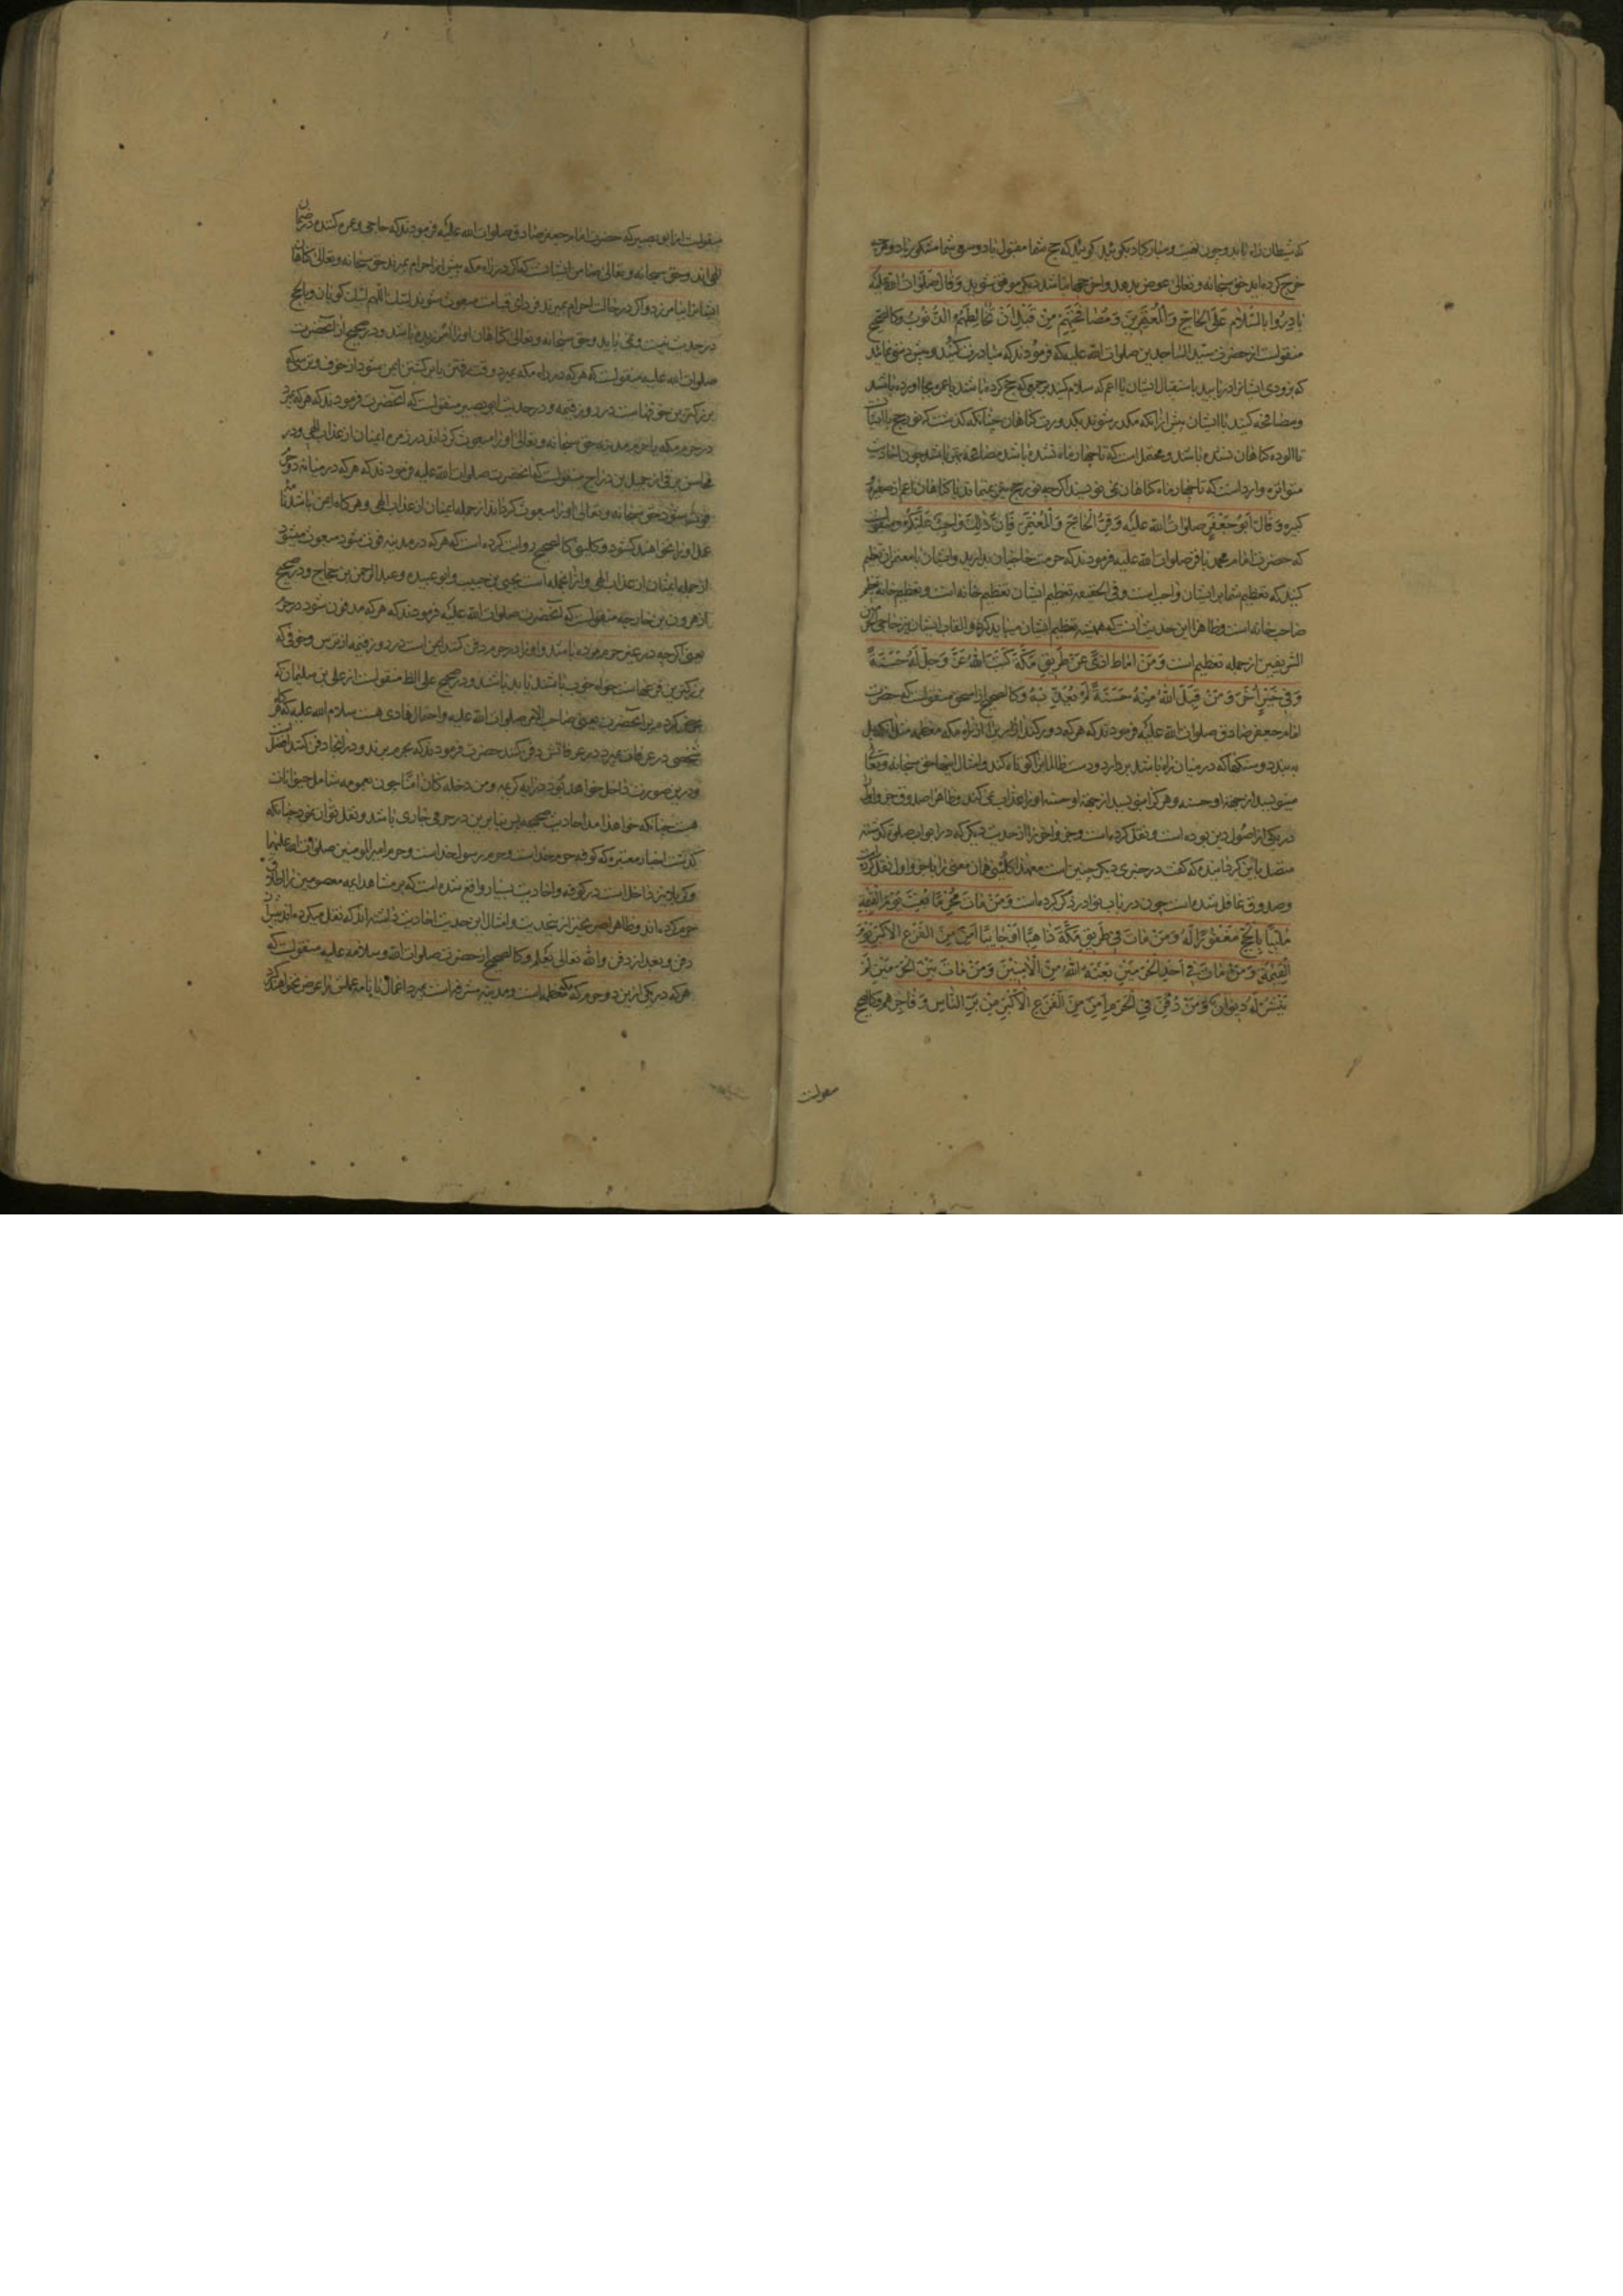 که شیطان راه یابد و چون تهنیت و مبارکباد بکوئید کوئید که حج شما مقبول باد و سعی شما مشکور باد و هرچه
خرج کرده‌اید حق سبحانه و تعالی عوض بدهد و اخر حجها نباشد دیکر موفق شوید وقال صلوات الله علیه
بادِروا بالسّلام علی الحاجّ والمُعتَمِرینَ ومُصافحتِهِم من قبلِ أن تُخالِطَهُم الذّنوبُ وکالصحیح
منقولست از حضرت سیّد الساجدین صلوات الله علیه که فرمودند که مبادرت کنید و
که بزودی ایشانرا دریابید باستقبال ایشان یا اعم که سلام کنید بر جمعی که حج کرده باشند یا عمره بجا اورده باشند
ومصافحه کنید با ایشان پیش ازانکه مکدر شوند بکدورت کناهان چنانکه کذشت که نور حج با ایشان
تا الوده کناهان نشده باشند و محتمل است که تا چهار ماه نشده باشد مصافحه چون احادیث
متواتره وارد است که تا چهار ماه کناهان نمی‌نویسند اکرچه نور حج با کناهان اعم از صغیره
کبیره وقال ابوجعفر صلوات الله علیه وقّروا الحاجّ والمُعتمرَ فانّ ذلك واجبٌ علیکم ومنقولست
که حضرت امام محمد باقر صلوات الله علیه فرمودند که حرمت حاجیان بدارید وایشان با معتمران تعظیم
کنید که تعظیم شما بر ایشان واجب است و فی الحقیقه تعظیم ایشان تعظیم خانه است و تعظیم خانه تعظیم
صاحب خانه است و ظاهرا این حدیث انست که همیشه تعظیم ایشان میباید کرد و القاب ایشان نیز حاجی الحرمین
الشریفین از جمله تعظیم است ومَن اماطَ اذیً عن طریقِ مکّةَ کتبَ اللهُ عزّ وجلّ له حسنةً
وفی خبرٍ آخرَ ومن قبلَ اللهُ منه حسنةً لم یُعذّبهُ وکالصحیح از اسحق منقولست که حضرت
امام جعفر صادق صلوات الله علیه فرمودند که هرکه دور کند ازاری را از راه مکه معظمه مثل انکه پل
به بندد و سنکها که در میان راه باشد بر دارد و دست ظالمان را کوتاه کند و امثال اینها حق سبحانه و تعالی
مینویسد از جهة او حسنه و هرکرا بنویسد از جهة او حسنه او را عذاب نمی‌کند و ظاهرا صدوق جزو اول
در یکی از اصول دین بوده است و نقل کرده است و جزو اخر را از حدیث دیکر که در ابواب صلوة کذشته
متصل باین کردانیده که کفت در خبری دیکر چنین است معهذا کلینی همان معنی را با جزو اول نقل کرده است
وصدوق غافل شده است چون در باب نوادر ذکر کرده است ومَن ماتَ مُحرِماً بُعِثَ یومَ القیمةِ
مُلبّیاً بالحجّ مغفوراً له ومن مات فی طریقِ مکّةَ ذاهباً او جایباً امِنَ من الفزعِ الاکبرِ یومَ
القیمةِ ومن ماتَ فی احدِ الحرمینِ بعثهُ اللهُ من الآمِنینَ ومن مات بینَ الحرمینِ لم
یُنشر له دیوانٌ ومن دُفِنَ فی الحرمِ امِنَ من الفزعِ الاکبرِ من بَرّ الناسِ وفاجرِهم وکالصحیح
منقولست
منقولست از ابو بصیر که حضرت امام جعفر صادق صلوات الله علیه فرمودند که حاجی و عمره کننده در ضمان
الهی‌اند و حق سبحانه و تعالی ضامن ایشانست که اکر در راه مکه پیش از احرام بمیرند حق سبحانه و تعالی کناهان
ایشانرا بیامرزد و اکر در حالت احرام بمیرند فردای قیامت مبعوث شوند لبیك اللهم لبیك کویان و بالحج
در حدیث نیست و می باید و حق سبحانه و تعالی کناهان او را امرزیده باشد و در صحیح از انحضرت
صلوات الله علیه منقولست که هرکه در راه مکه بمیرد وقت رفتن یا برکشتن ایمن شود از خوف و ترسی که
بزرکترین خوفهاست در روز قیمه و در حدیث ابو بصیر منقولست که انحضرت فرمودند که هرکه بمیرد
در حرم مکه یا حرم مدینه حق سبحانه و تعالی او را مبعوث کرداند در زمره ایمنان از عذاب الهی و در
محاسن برقی از جمیل بن دراج منقولست که انحضرت صلوات الله علیه فرمودند که هرکه در میانه دو حرم
فوت شود حق سبحانه و تعالی او را مبعوث کرداند از جمله ایمنان از عذاب الهی و هرکاه ایمن باشد نامه
عمل او را نخواهند کشود و کلینی کالصحیح روایت کرده است که هرکه در مدینه فوت شود مبعوث میشود
از جمله ایمنان از عذاب الهی و از انجمله است یحیی بن حبیب و ابو عبیده و عبدالرحمن بن حجاج و در صحیح
از هرون بن خارجه منقولست که انحضرت صلوات الله علیه فرمودند که هرکه مدفون شود در حرم
یعنی اکرچه در غیر حرم مرده باشد و او را در حرم دفن کنند ایمن است در روز قیمه از ترس و خوفی که
بزرکترین فزعهاست خواه خوب باشند یا بد باشند و در صحیح علی الظ منقولست از علی بن سلیمان که
عرض کردم بر انحضرت یعنی صاحب الامر صلوات الله علیه و احتمال هادی هست سلام الله علیه که اکر
شخصی در عرفات بمیرد در عرفاتش دفن کنند حضرت فرمودند که بحرم برند و در انجا دفن کنند افضل است
و درین صورت داخل خواهد بود در ایه کریمه ومن دخله کان امنا چون بعمومه شامل حیوانات
هست چنانکه خواهد امد احادیث صحیحه پس بنابرین در حرمی جاری باشد و نقل توان نمود چنانکه
کذشت اخبار معتبره که کوفه حرم خداست و حرم رسول خداست و حرم امیرالمومنین صلوات الله علیهما
و کربلا نیز داخل است در کوفه و احادیث بسیار واقع شده است که بر مشاهد ائمه معصومین نیز اطلاق
حرم کرده‌اند و ظاهرا میکرده‌اند پیش از
دفن و بعد از دفن والله تعالی یعلم وکالصحیح از حضرت صلوات الله وسلامه علیه منقولست که
هرکه در یکی ازین دو حرم که مکه معظمه است و مدینه مشرفه است بمیرد اعمال یا نامه عملش را عرض نخواهند کرد